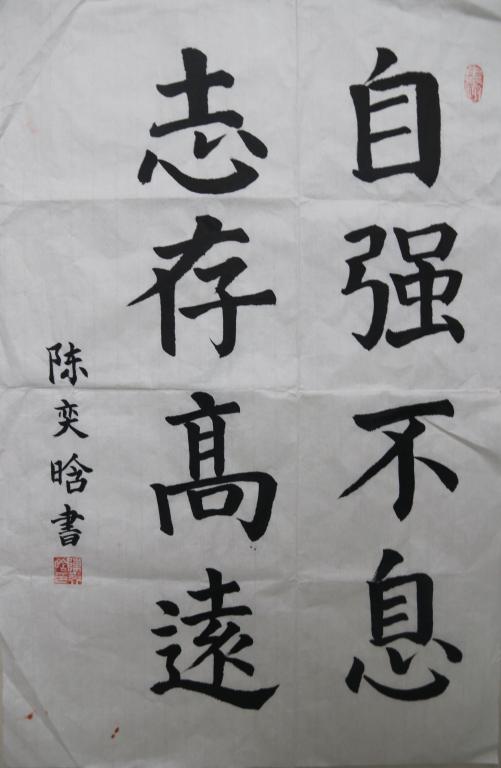 自强不息
志存髙遠
陈奕晗書